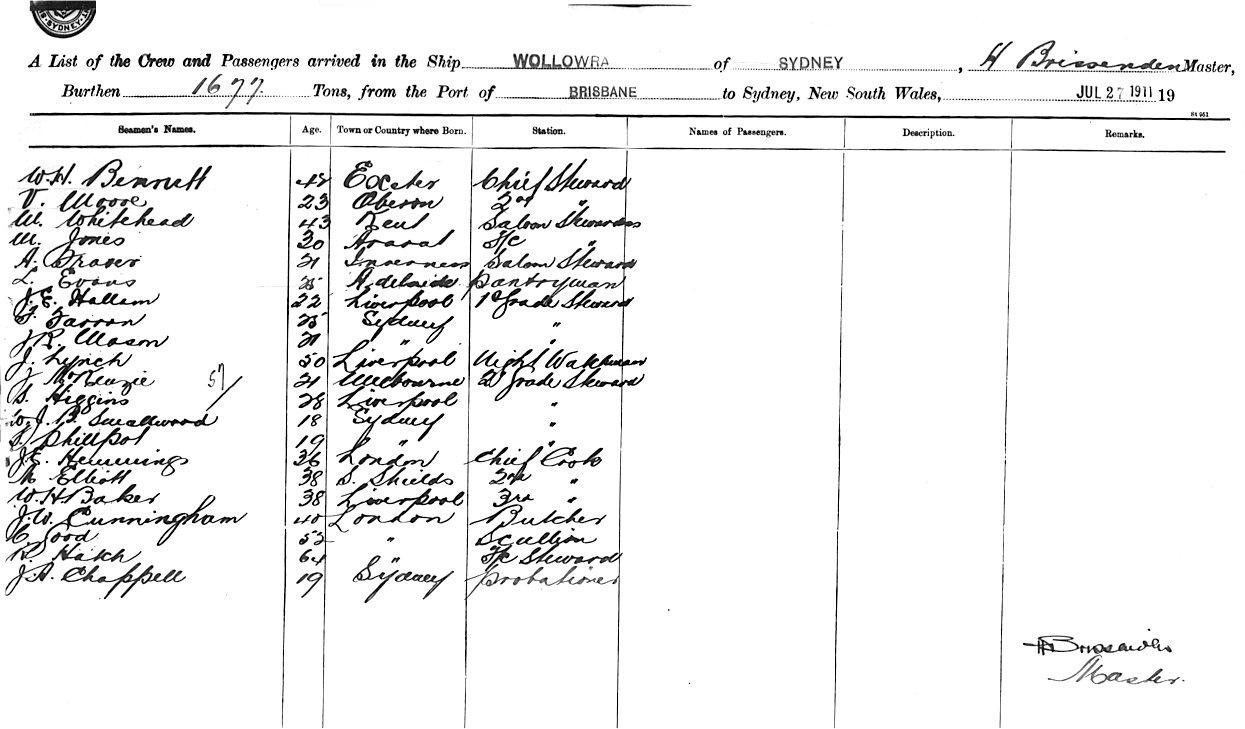 SYDNEY
A List of the Crew and Passengers arrived in the Ship WOLLOWRA of SYDNEY, H Brissenden Master,
Burthen 1677. Tons, from the Port of BRISBANE to Sydney, New South Wales, JUL 27 1911 19
Seamen's Names. Age. Town or Country where Born. Station. Names of Passengers. Description. Remarks.
W.H. Bennett 48 Exeter Chief Steward
V. Moore 23 Oberon 2nd "
M. Whitehead 43 Kent Saloon Stewardess
M. Jones 30 Ararat F/C "
A. Fraser 21 Inverness Saloon Steward
L. Evans 25 Adelaide Pantryman
J.E. Hallam 22 Liverpool 1st Grade Steward
F. Farran 25 Sydney "
J.R. Mason 21 " "
J. Lynch 50 Liverpool Night Watchman
J McKenzie 57/ 21 Melbourne 2d Grade Steward
S. Higgins 28 Liverpool "
W.J.B. Smallwood 18 Sydney "
S. Phillpot 19 " "
J.E. Hemmings 36 London Chief Cook
Elliott 38 S. Shields 2nd "
W.H Baker 38 Liverpool 3rd "
J.W. Cunningham 40 London Butcher
C. Good 52 " Scullion
R. Hatch 64 " F/C Steward
J.A. Chappell 19 Sydney Probationer
H Brissenden
Master.